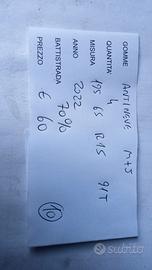 GOMME ANTINEVE M+S
QUANTITA' 4
MISURA 195 65 R15 91T
ANNO 2022
BATTISTRADA 70%
PREZZO € 60
10
subito